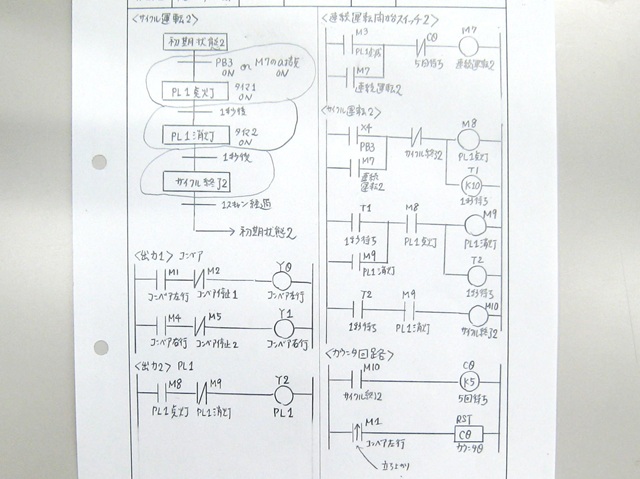 <サイクル運転2>
初期状態2
PB3 or M7のa接点
ON ON
PL1点灯
タイマ1
ON
1秒後
PL1消灯
タイマ2
ON
1秒後
サイクル終了2
1スキャン経過
初期状態2
<出力1> コンベア
M1 M2 Y0
コンベア左行 コンベア停止1 コンベア左行
M4 M5 Y1
コンベア右行 コンベア停止2 コンベア右行
<出力2> PL1
M8 M9 Y2
PL1点灯 PL1消灯 PL1
<連続運転開始スイッチ2>
M3 C0 M7
5回待ち 連続運転2
M7
連続運転2
<サイクル運転2>
X4 M8
PB3 サイクル終了2 PL1点灯
M7 T1
連続 K10
運転2 1秒待ち
T1 M8 M9
1秒待ち PL1点灯 PL1消灯
M9 T2
PL1消灯 1秒待ち
T2 M9 M10
1秒待ち PL1消灯 サイクル終了2
<カウンタ回路>
M10 C0
K5
サイクル終了2 5回待ち
M1 RST
C0
コンベア左行 カウンタ0
立ち上がり